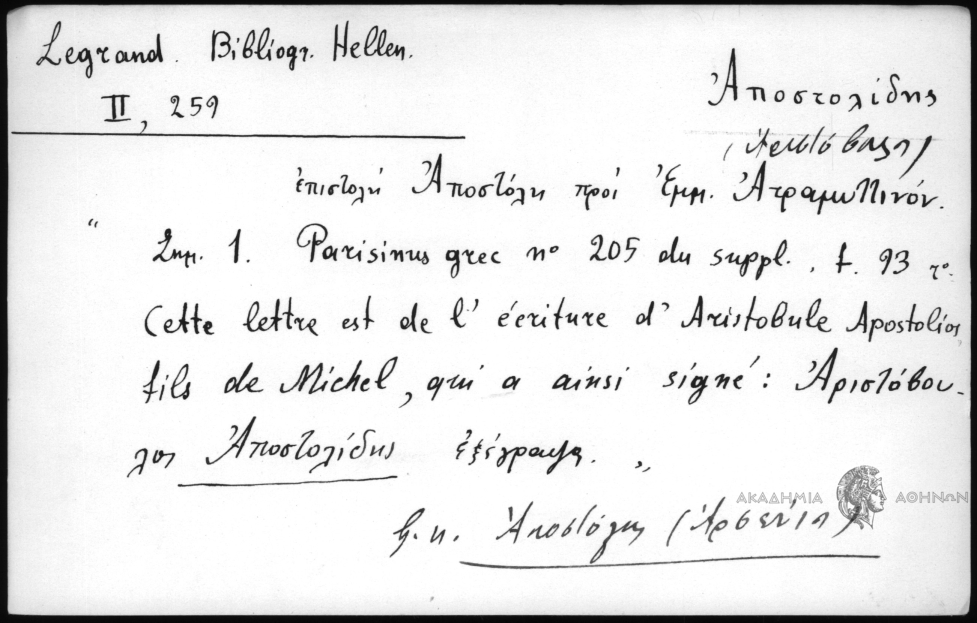 Legrand. Bibliogr. Hellen.
II, 259
Ἀποστολίδης
(Ἀριστόβουλος)
ἐπιστολὴ Ἀποστόλη πρὸς Ἐμμ. Ἀτραμυττινόν.
“ Σημ. 1. Parisinus grec nº 205 du suppl., f. 93 rº.
Cette lettre est de l' écriture d' Aristobule Apostolios,
fils de Michel, qui a ainsi signé: Ἀριστόβου-
λος Ἀποστολίδης ἐξέγραψε. „
ΑΚΑΔΗΜΙΑ ΑΘΗΝΩΝ
Ἀποστόλης (Ἀρσένιος)